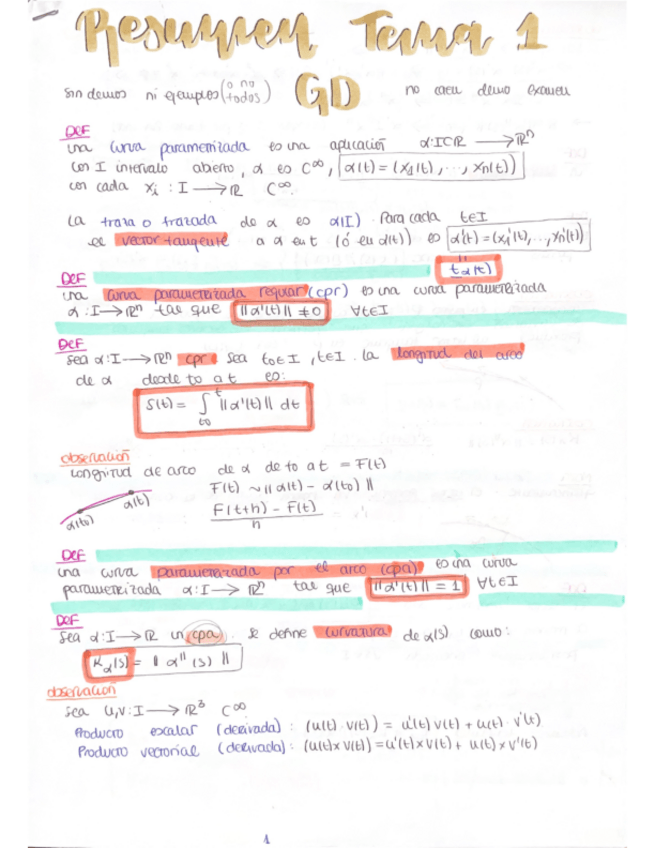 Resumen Tema 1
sin demos ni ejemplos (o no todos) GD no caen demo examen
DEF
una curva parametrizada es una aplicación α:I⊂ℝ ⟶ ℝⁿ
con I intervalo abierto, α es C∞, α(t) = (x₁(t), ..., xₙ(t))
con cada xᵢ : I ⟶ ℝ C∞.
La traza o trazada de α es α(I). Para cada t∈I
el vector tangente a α en t (ó en α(t)) es α'(t) = (x₁'(t), ..., xₙ'(t))
"
tα(t)
DEF
una curva parametrizada regular (cpr) es una curva parametrizada
α : I ⟶ ℝⁿ tal que ||α'(t)|| ≠ 0 ∀t∈I
DEF
sea α: I ⟶ ℝⁿ cpr sea t₀∈I, t∈I. La longitud del arco
de α desde t₀ a t es:
S(t) = ∫ₜ₀ᵗ ||α'(t)|| dt
observación
Longitud de arco de α de t₀ a t = F(t)
F(t) ~ ||α(t) - α(t₀)||
α(t)
α(t₀)
F(t+h) - F(t)
h
DEF
una curva parametrizada por el arco (cpa) es una curva
parametrizada α: I ⟶ ℝⁿ tal que ||α'(t)|| = 1 ∀t∈I
DEF
Sea α: I ⟶ ℝ un cpa. Se define curvatura de α(s) como:
Kα(s) = || α''(s) ||
observación
sea u,v: I ⟶ ℝ³ C∞
Producto escalar (derivada) : (u(t) · v(t)) = u'(t) v(t) + u(t) · v'(t)
Producto vectorial (derivada) : (u(t) x v(t)) = u'(t) x v(t) + u(t) x v'(t)
1